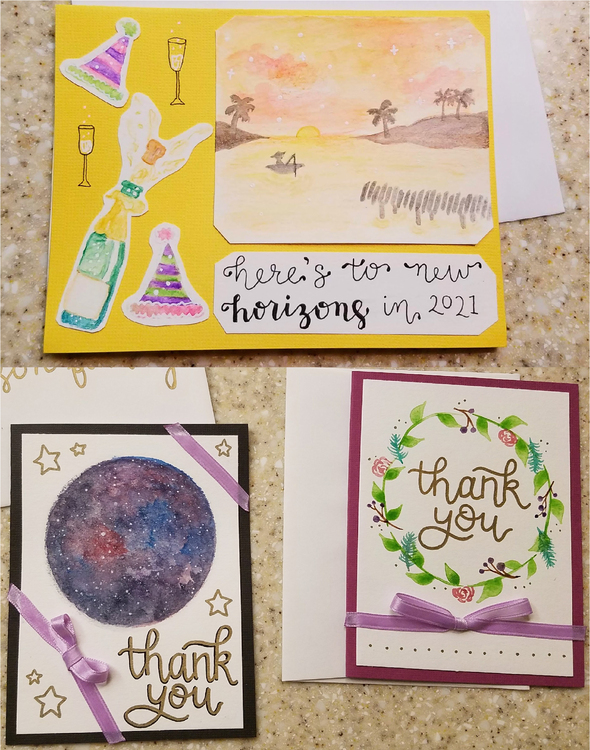 here's to new
horizons in 2021
thank
you
thank
you